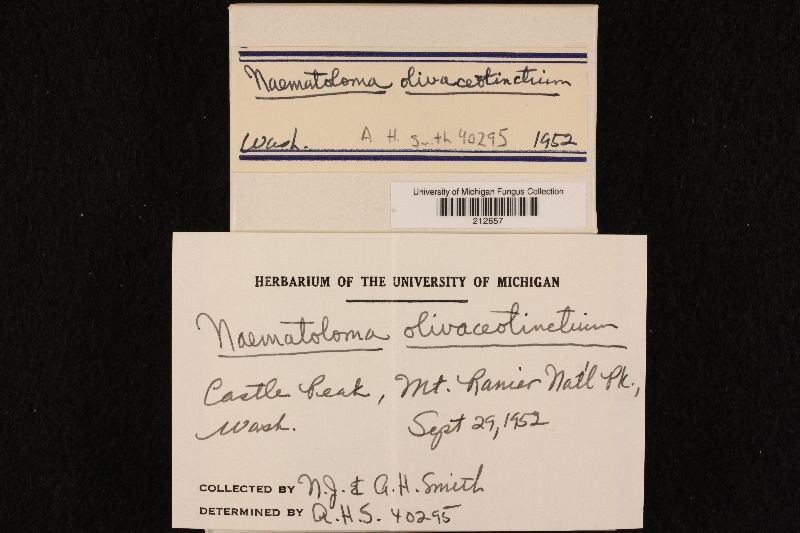 Naematoloma olivaceotinctum
Wash. A H Smith 40295 1952
University of Michigan Fungus Collection
212657
HERBARIUM OF THE UNIVERSITY OF MICHIGAN
Naematoloma olivaceotinctum
Castle Peak, Mt. Ranier Nat'l Pk.,
Wash. Sept 29, 1952
COLLECTED BY N.J. & A.H. Smith
DETERMINED BY A.H.S. 40295